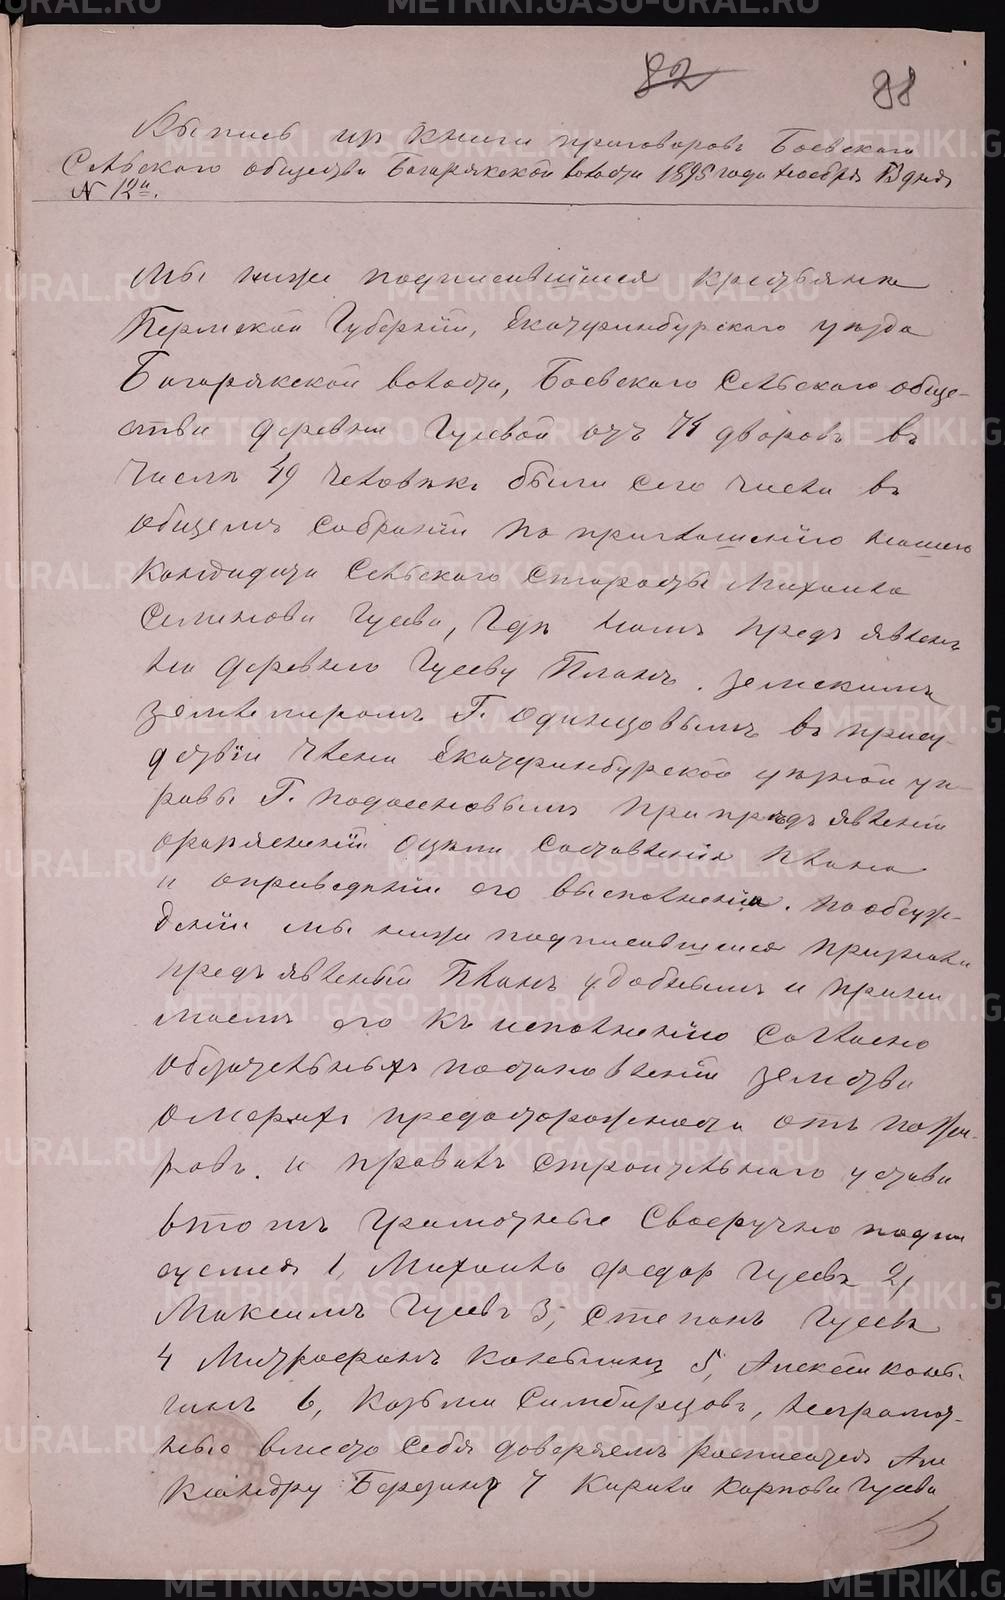 82 88
Выпись изъ книги приговоровъ Боевскаго
Сельскаго общества Багарякской волости 1895 года ноября 13 дня
№ 12й.
Мы ниже подписавшиеся крестьяне
Пермской Губерніи, Екатеринбургскаго уѣзда
Багарякской волости, Боевскаго Сельскаго обще-
ства деревни Гусевой отъ 74 дворовъ въ
числѣ 49 человѣкъ были сего числа въ
общемъ собраніи по приглашенію нашего
Кандидата Сельскаго Старосты Михаила
Семенова Гусева, Гдѣ намъ предъявленъ
на деревню Гусеву Планъ. земскимъ
землемеромъ Г. Одинцовымъ въ присут-
ствіи члена Екатеринбургской уѣздной уп-
равы Г. Подосеновымъ при предъявленіи
разъясненіи сути составленія плана
и определеніи его выполнения. по обсуж-
деніи мы ниже подписавшиеся признали
предъявленый Планъ удобнымъ и прини
маемъ его къ исполнению Согласно
обязательныхъ постановленій земства
о мерахъ предосторожности отъ пожа-
ровъ. и правилъ строительнаго устава
въ томъ грамотные Своеручно подпи
суемся 1, Михаилъ Федор Гусевъ 2,
Максимъ Гусевъ 3, Степанъ Гусевъ
4 Митрофанъ Копытинъ 5, Алексеи Копы-
тинъ 6, Козьма Симбирцовъ, неграмот-
ные вместо Себя доверяемъ росписатся Але
ксандру Березину 7 Кирила Карпова Гусева
METRIKI.GASO-URAL.RU